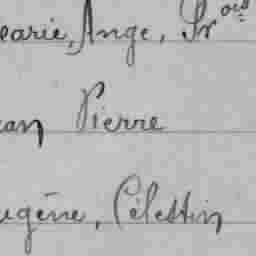 Marie, Ange, Fr^ois
ean Pierre
ugène, Célestin